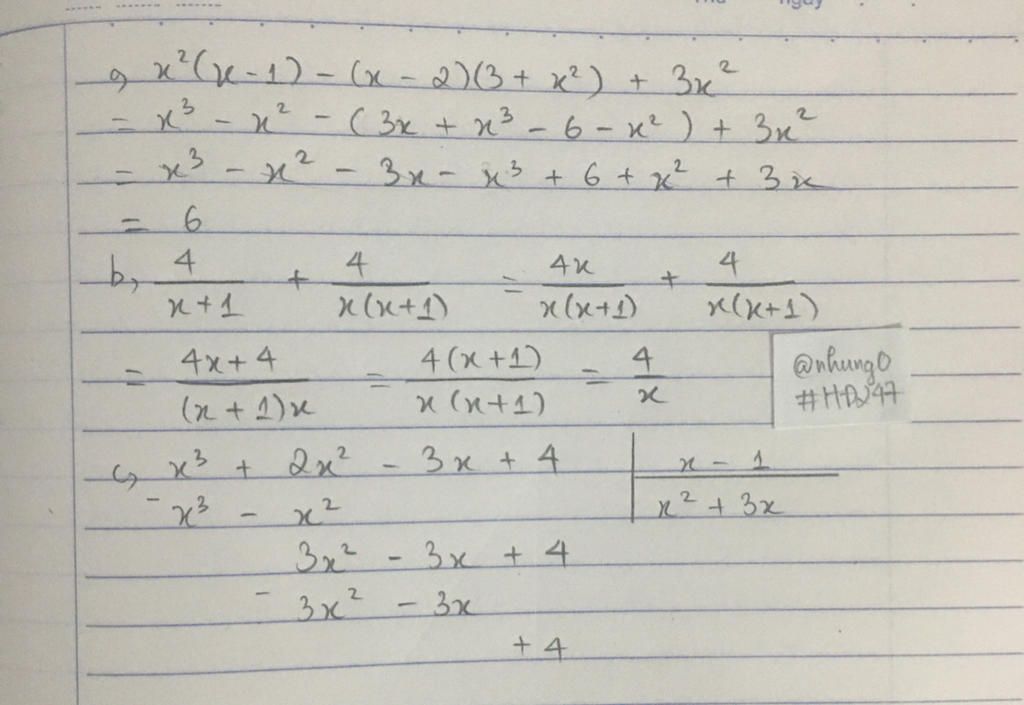 Thứ ngày
a, x²(x-1) - (x - 2)(3 + x²) + 3x²
= x³ - x² - (3x + x³ - 6 - x²) + 3x²
= x³ - x² - 3x - x³ + 6 + x² + 3x
= 6
b, 4/(x+1) + 4/(x(x+1)) = 4x/(x(x+1)) + 4/(x(x+1))
= (4x+4)/((x+1)x) = 4(x+1)/(x(x+1)) = 4/x
@nhung0
#HĐ247
c, x³ + 2x² - 3x + 4 | x - 1
- x³ - x² | x² + 3x
3x² - 3x + 4
- 3x² - 3x
+ 4